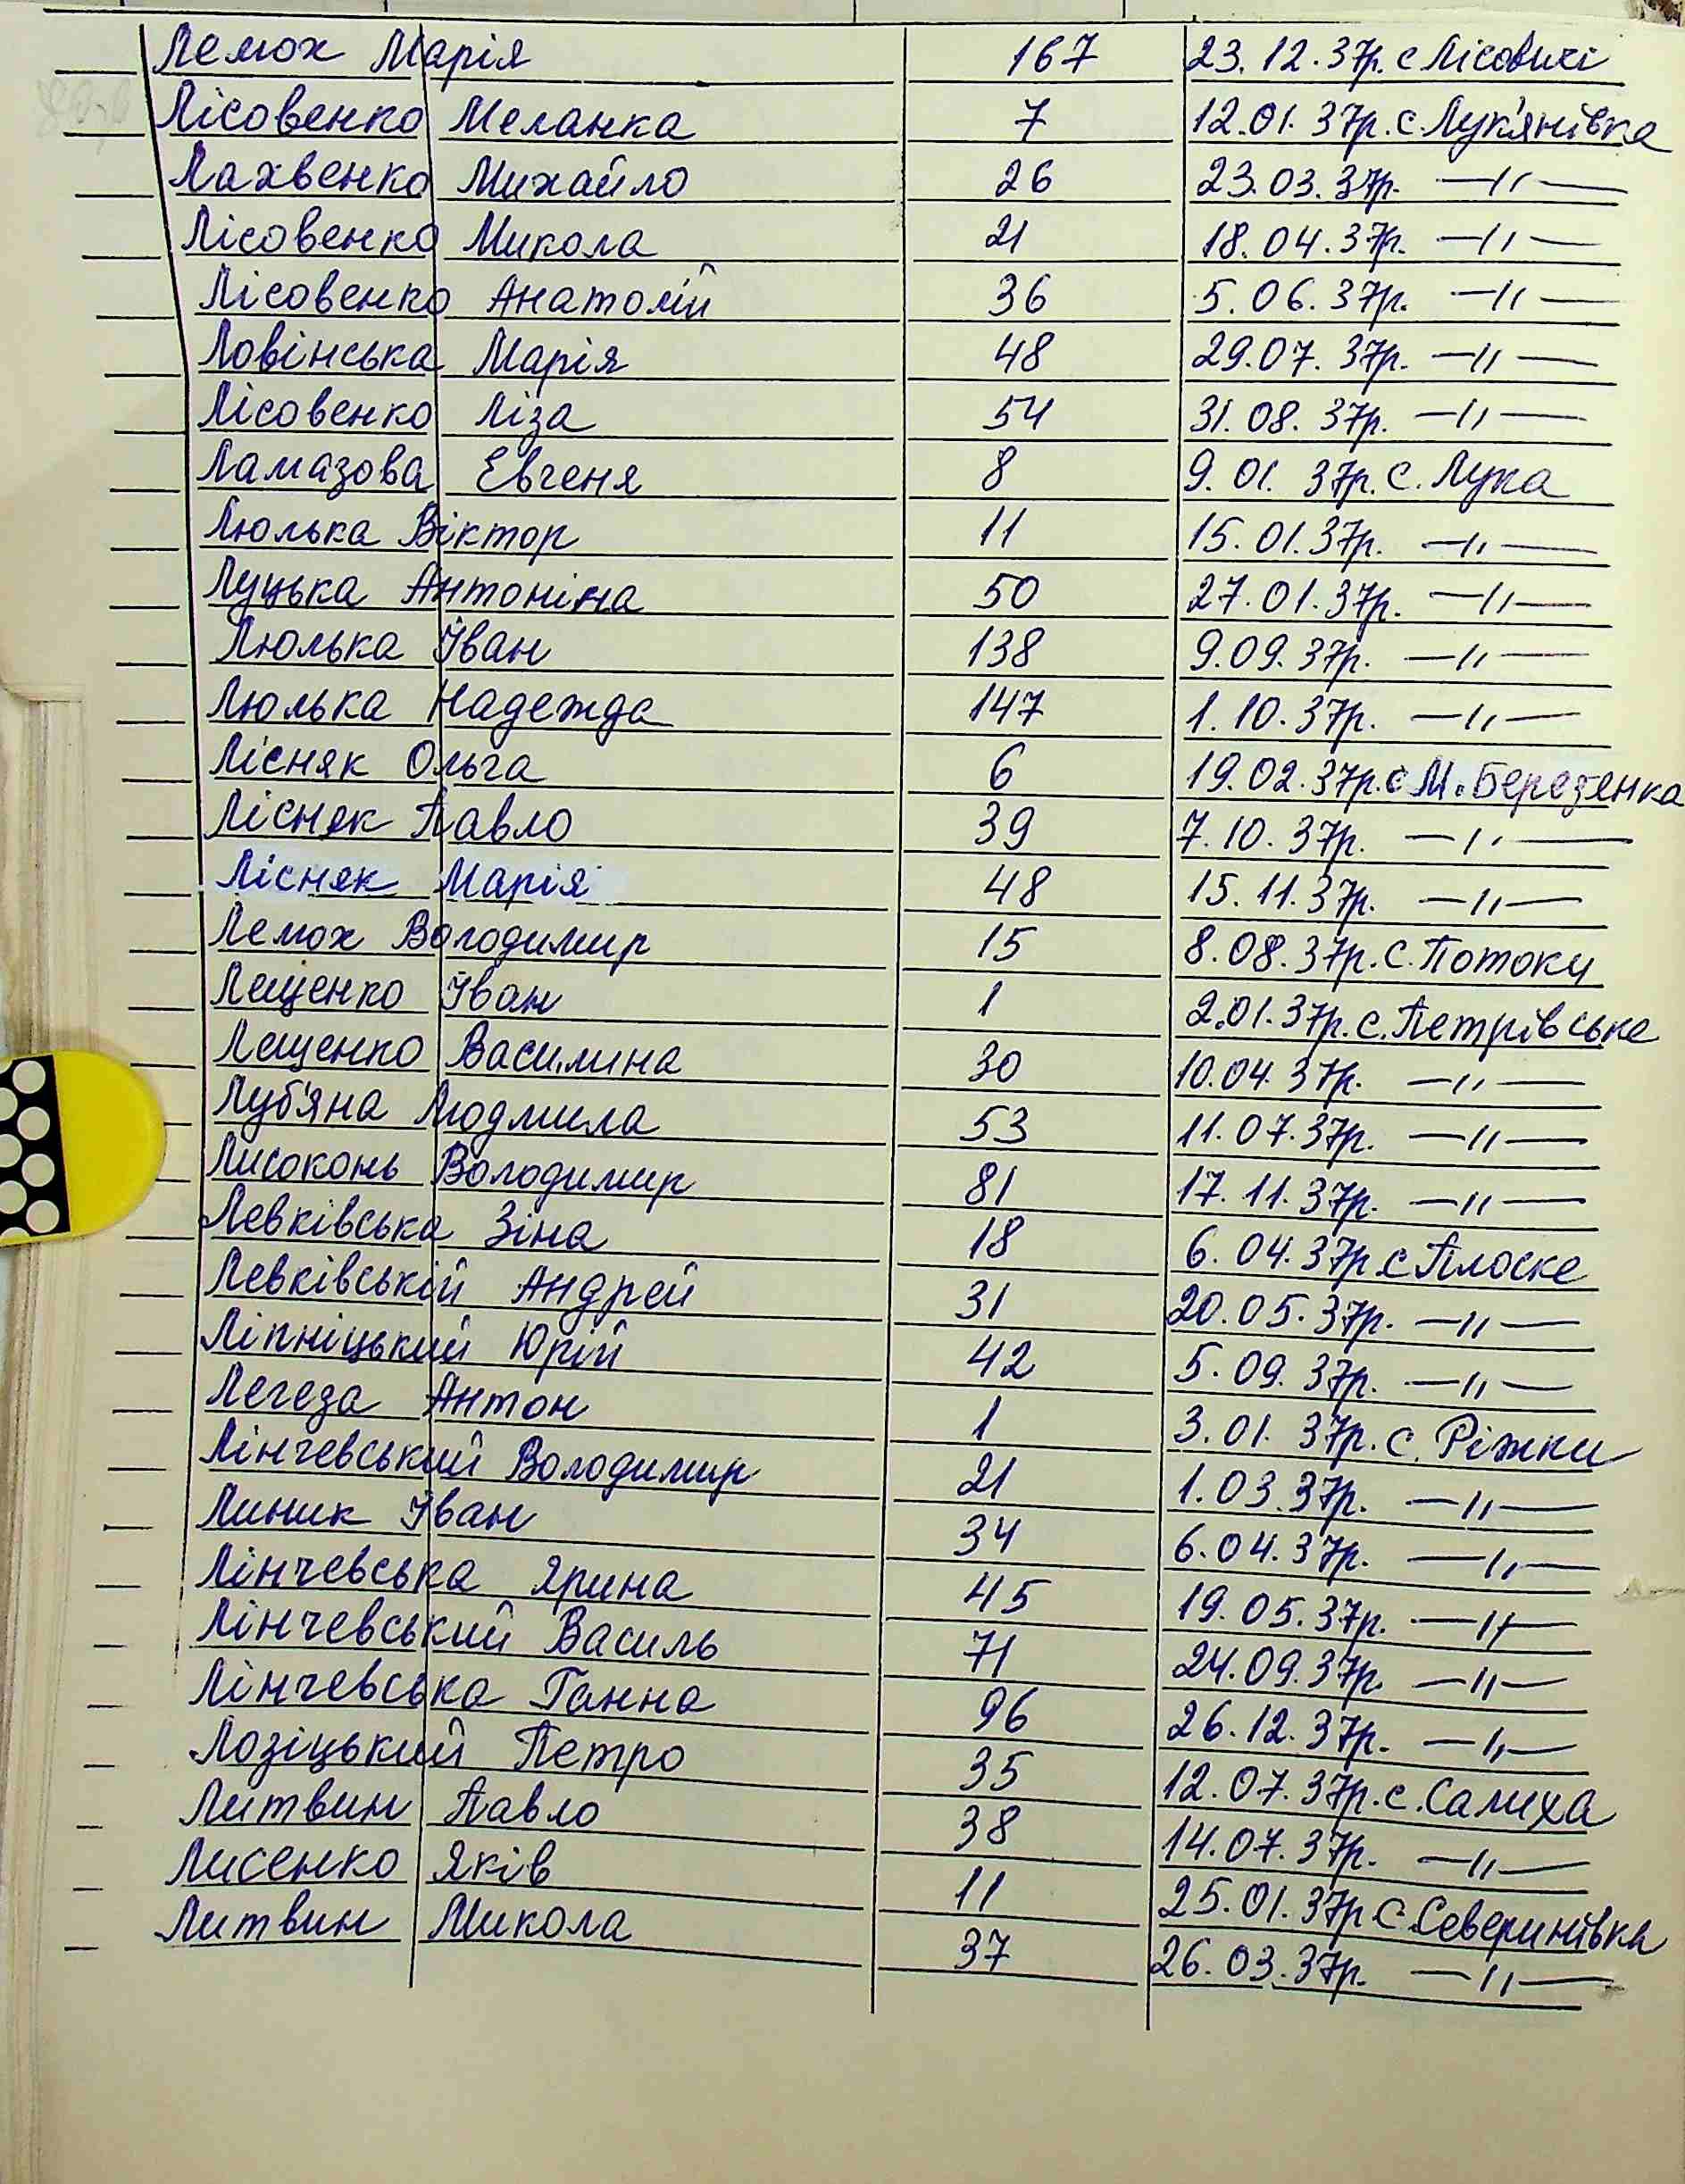 Лемох Марія 167 23.12.37р. с Лісовичі
Лісовенко Меланка 7 12.01.37р. с. Лук'янівка
Лахвенко Михайло 26 23.03.37р. —"—
Лісовенко Микола 21 18.04.37р. —"—
Лісовенко Анатолій 36 5.06.37р. —"—
Ловінська Марія 48 29.07.37р. —"—
Лісовенко Ліза 54 31.08.37р. —"—
Ламазова Евгеня 8 9.01.37р. с. Лука
Люлька Віктор 11 15.01.37р. —"—
Луцька Антоніна 50 27.01.37р. —"—
Люлька Іван 138 9.09.37р. —"—
Люлька Надежда 147 1.10.37р. —"—
Лісняк Ольга 6 19.02.37р. с М. Березянка
Лісняк Павло 39 7.10.37р. —"—
Лісняк Марія 48 15.11.37р. —"—
Лемох Володимир 15 8.08.37р. с. Потоки
Лещенко Іван 1 2.01.37р. с. Петрівське
Лещенко Василина 30 10.04.37р. —"—
Луб'яна Людмила 53 11.07.37р. —"—
Лисоконь Володимир 81 17.11.37р. —"—
Левківська Зіна 18 6.04.37р с Плоске
Левківській Андрей 31 20.05.37р. —"—
Ліпніцький Юрій 42 5.09.37р. —"—
Легеза Антон 1 3.01.37р. с. Ріжки
Лінчевський Володимир 21 1.03.37р. —"—
Линик Іван 34 6.04.37р. —"—
Лінчевська Ярина 45 19.05.37р. —"—
Лінчевський Василь 71 24.09.37р. —"—
Лінчевська Ганна 96 26.12.37р. —"—
Лозіцький Петро 35 12.07.37р. с. Салиха
Литвин Павло 38 14.07.37р. —"—
Лисенко Яків 11 25.01.37р с. Северинівка
Литвин Микола 37 26.03.37р. —"—